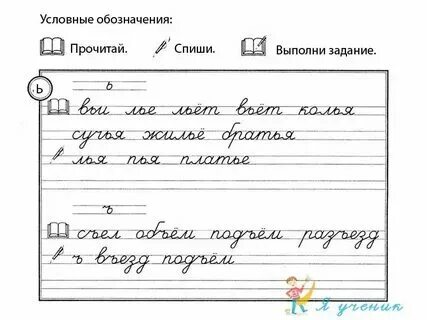 Условные обозначения:
Прочитай. Спиши. Выполни задание.
Ь
ь
вьи лье льёт вьёт колья
сучья жильё братья
лья пья платье
ъ
съел объём подъём разъезд
ъ въезд подъём
Я ученик